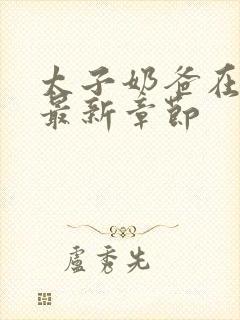 太子奶爸在
最新章節
盧秀先